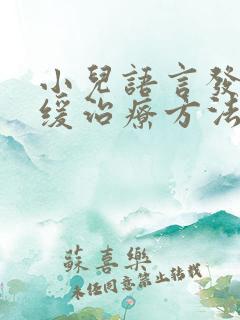 小兒語言發
緩治療方法
蘇喜樂
未經同意禁止轉載